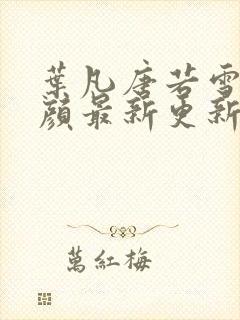 葉凡唐若雪
顏最新更新
萬紅梅